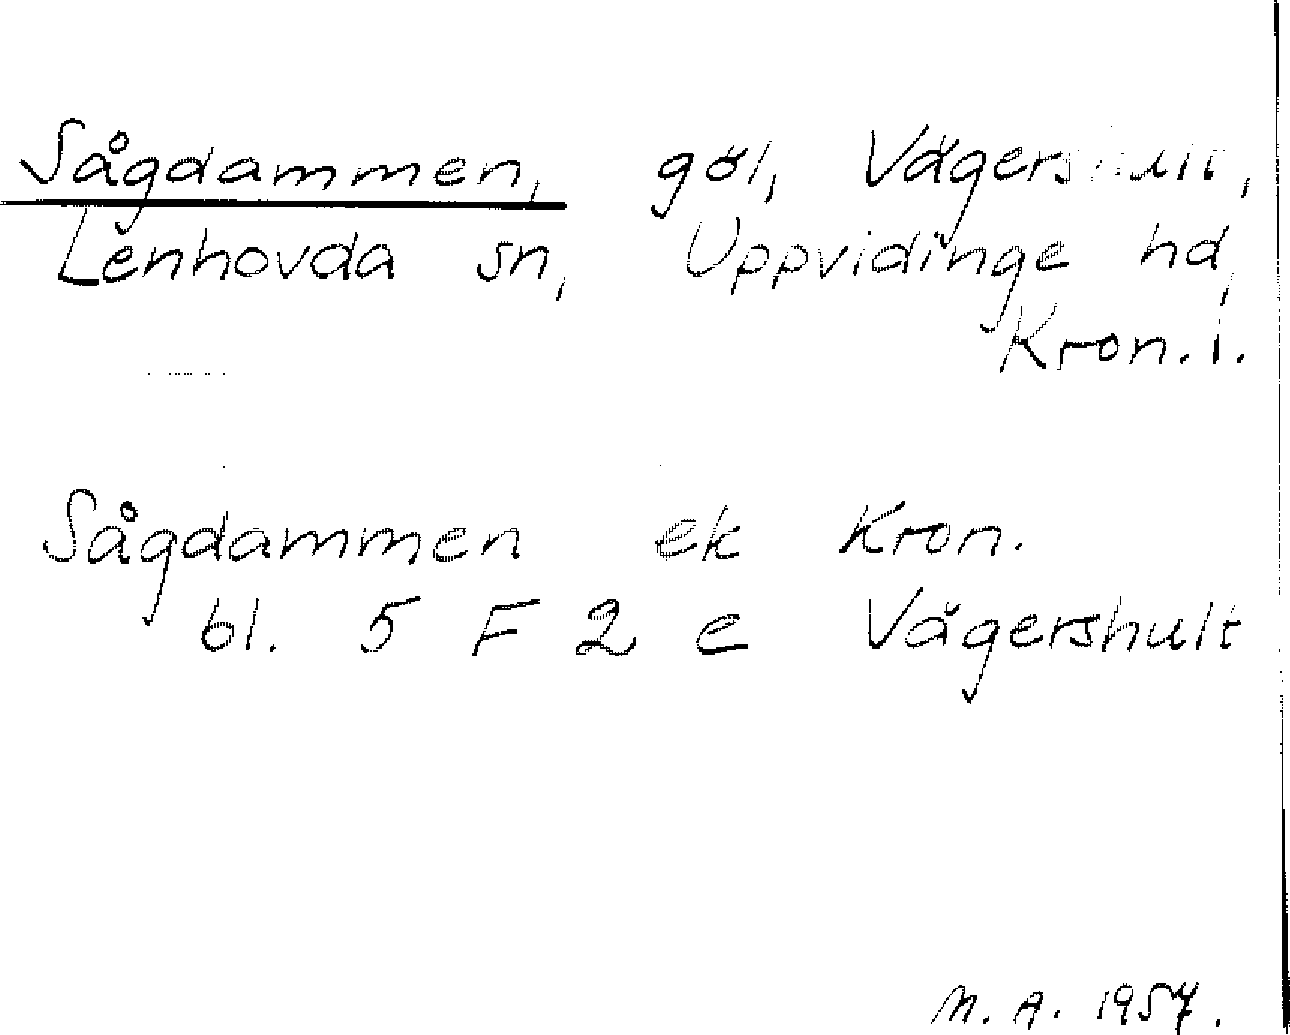 Sågdammen, göl, Vägershult,
Lenhovda sn, Uppvidinge hd,
Kron. l.
Sågdammen ek Kron.
bl. 5 F 2 e Vägershult
M. A. 1957.